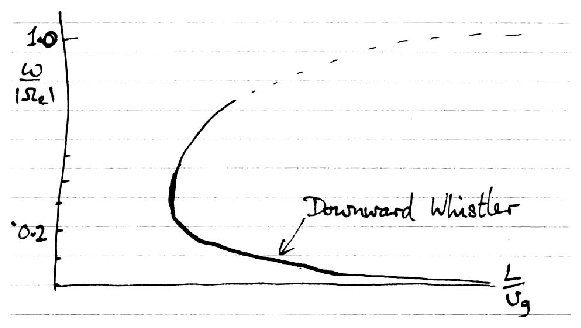 1.0
ω
|Ωe|
0.2
Downward Whistler
L
Ug